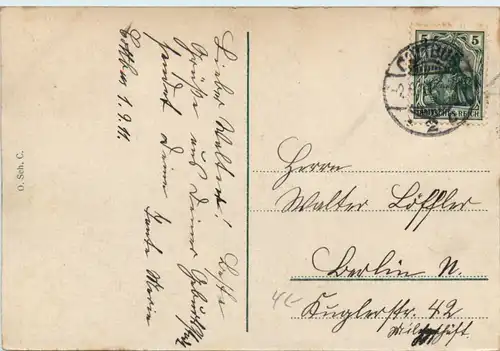 Cottbus 1.9.11.
Lieber Walter! Beste
Grüße aus Deiner Geburtsstadt
sendet Deine
Tante Maria
O. Sch. C.
5 5
COTTBUS
2
DEUTSCHES REICH
Herrn
Walter Löffler
Berlin N.
Kuglerstr. 42